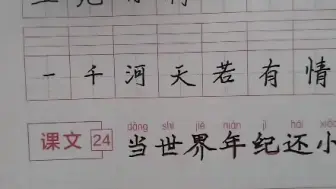 一千河天若有情
课文 24
dāng shì jiè nián jì hái xiǎo
当世界年纪还小